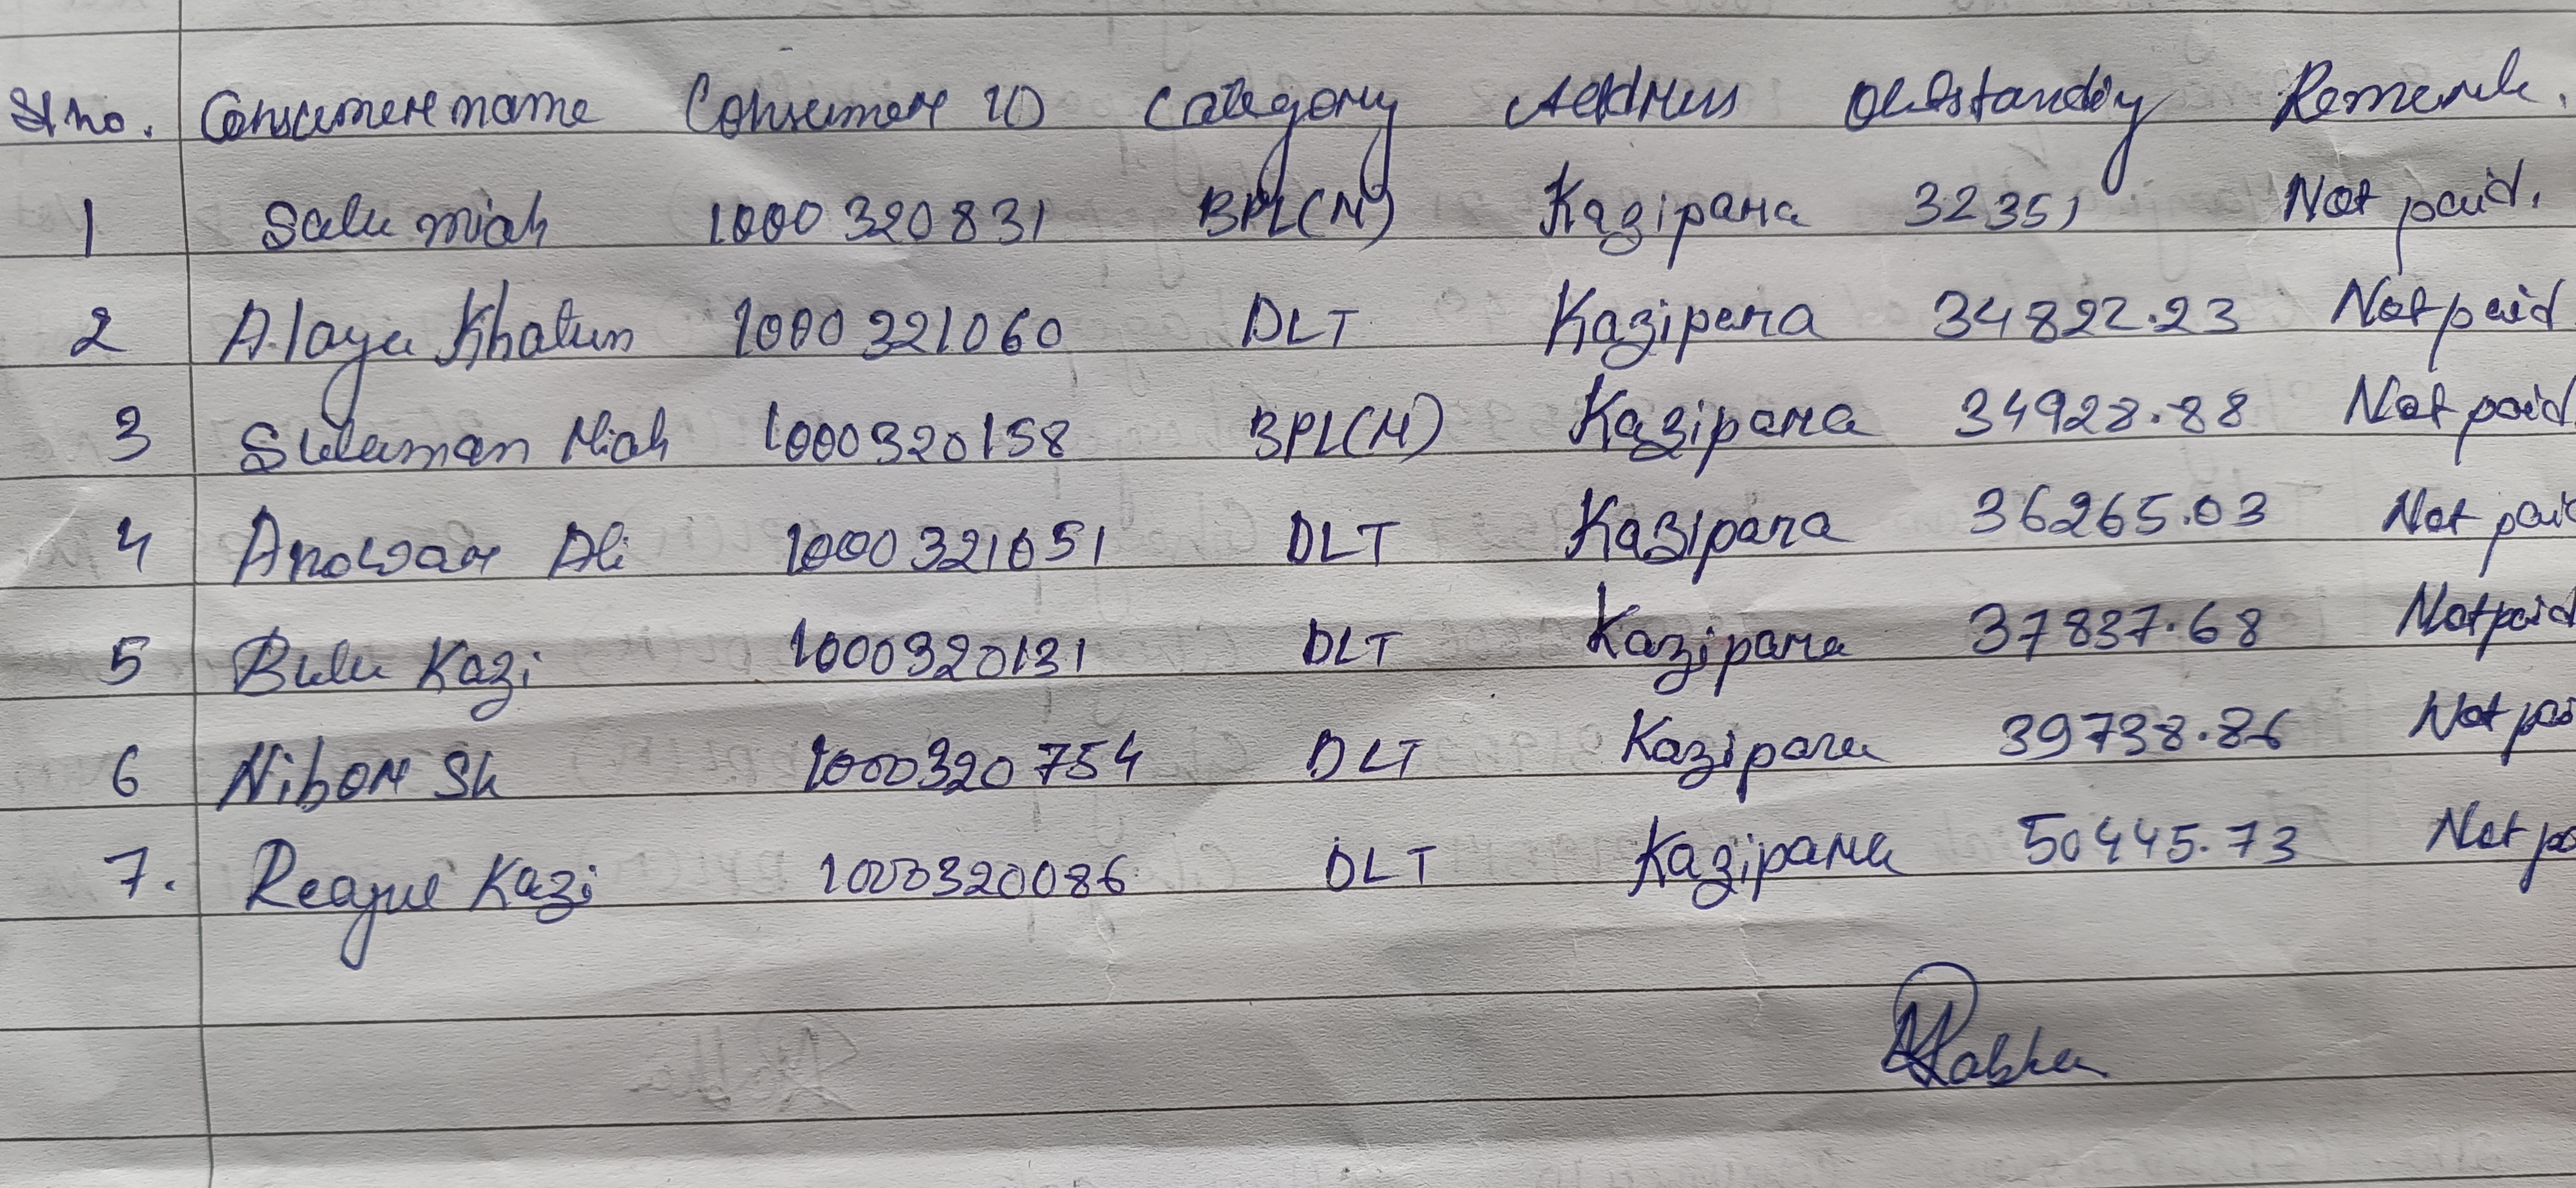 Sl no. Consumer name Consumer ID Category Address Outstanding Remark.
1 Salu miah 1000320831 BPL(M) Kazipara 32351 Not paid.
2 Alaya Khatun 1000321060 DLT Kazipara 34822.23 Not paid
3 Sulaman Miah 1000320158 BPL(M) Kazipara 34928.88 Not paid
4 Anowar Ali 1000321051 DLT Kazipara 36265.03 Not paid
5 Bulu Kazi 1000320131 DLT Kazipara 37837.68 Not paid
6 Nibor Sk 1000320754 DLT Kazipara 39738.86 Not pai
7. Kazi 1000320086 DLT Kazipara 50445.73 Not pa